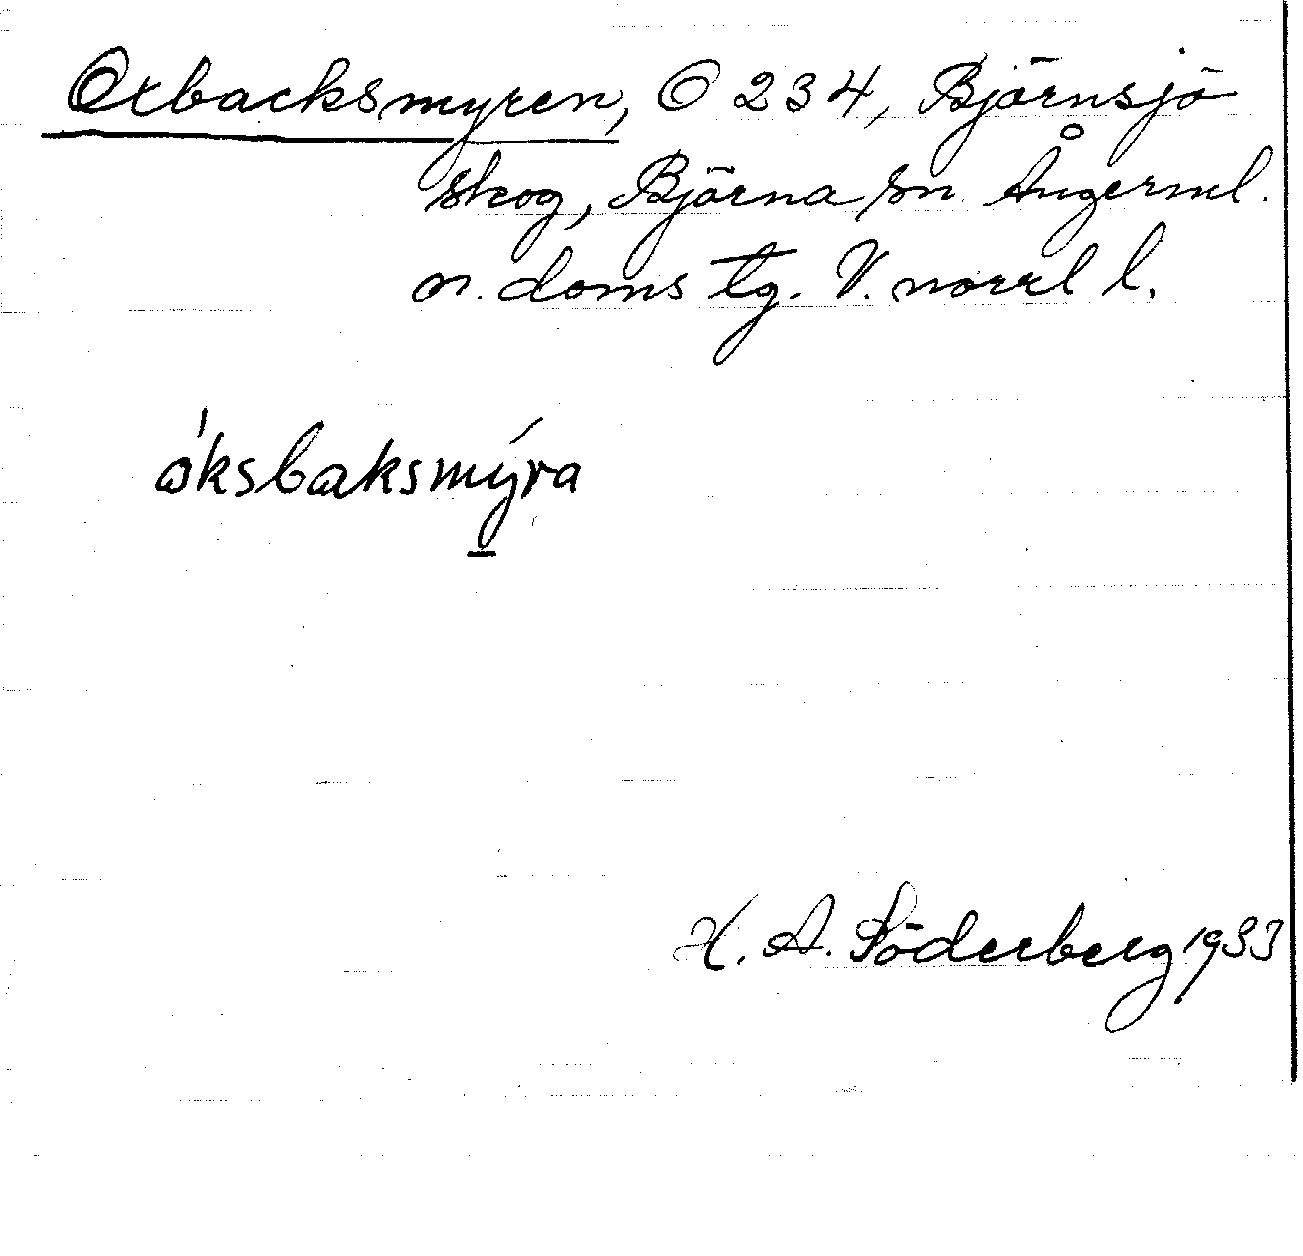 Oxbacksmyren, O 234, Björnsjö
skog, Björna sn Ångerml.
n. doms tg. V. norrl l.
åksbaksmýra
H. A. Söderberg 1933